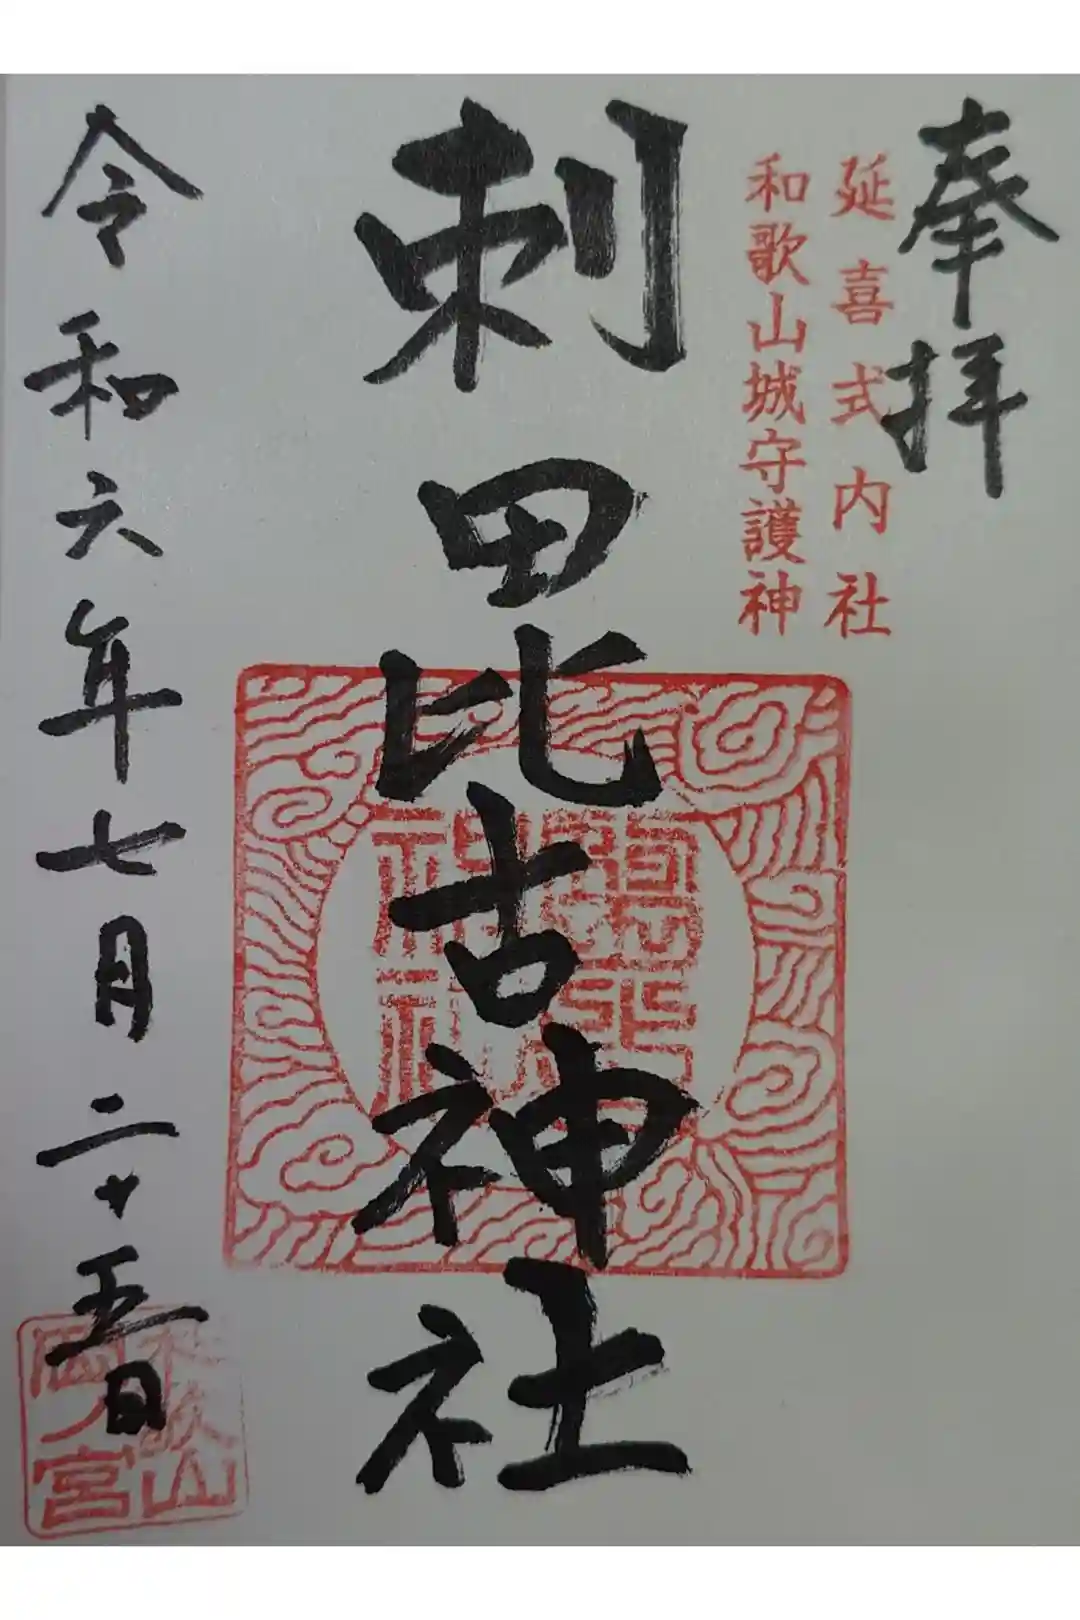 奉拝
延喜式内社
和歌山城守護神
刺田比古神社
令和六年七月二十五日
和歌山
岡ノ宮